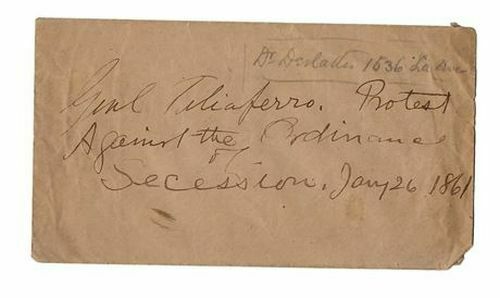 Dr 1536
Genl Taliaferro. Protest
Against the Ordinance
of
Secession. Jany 26 1861